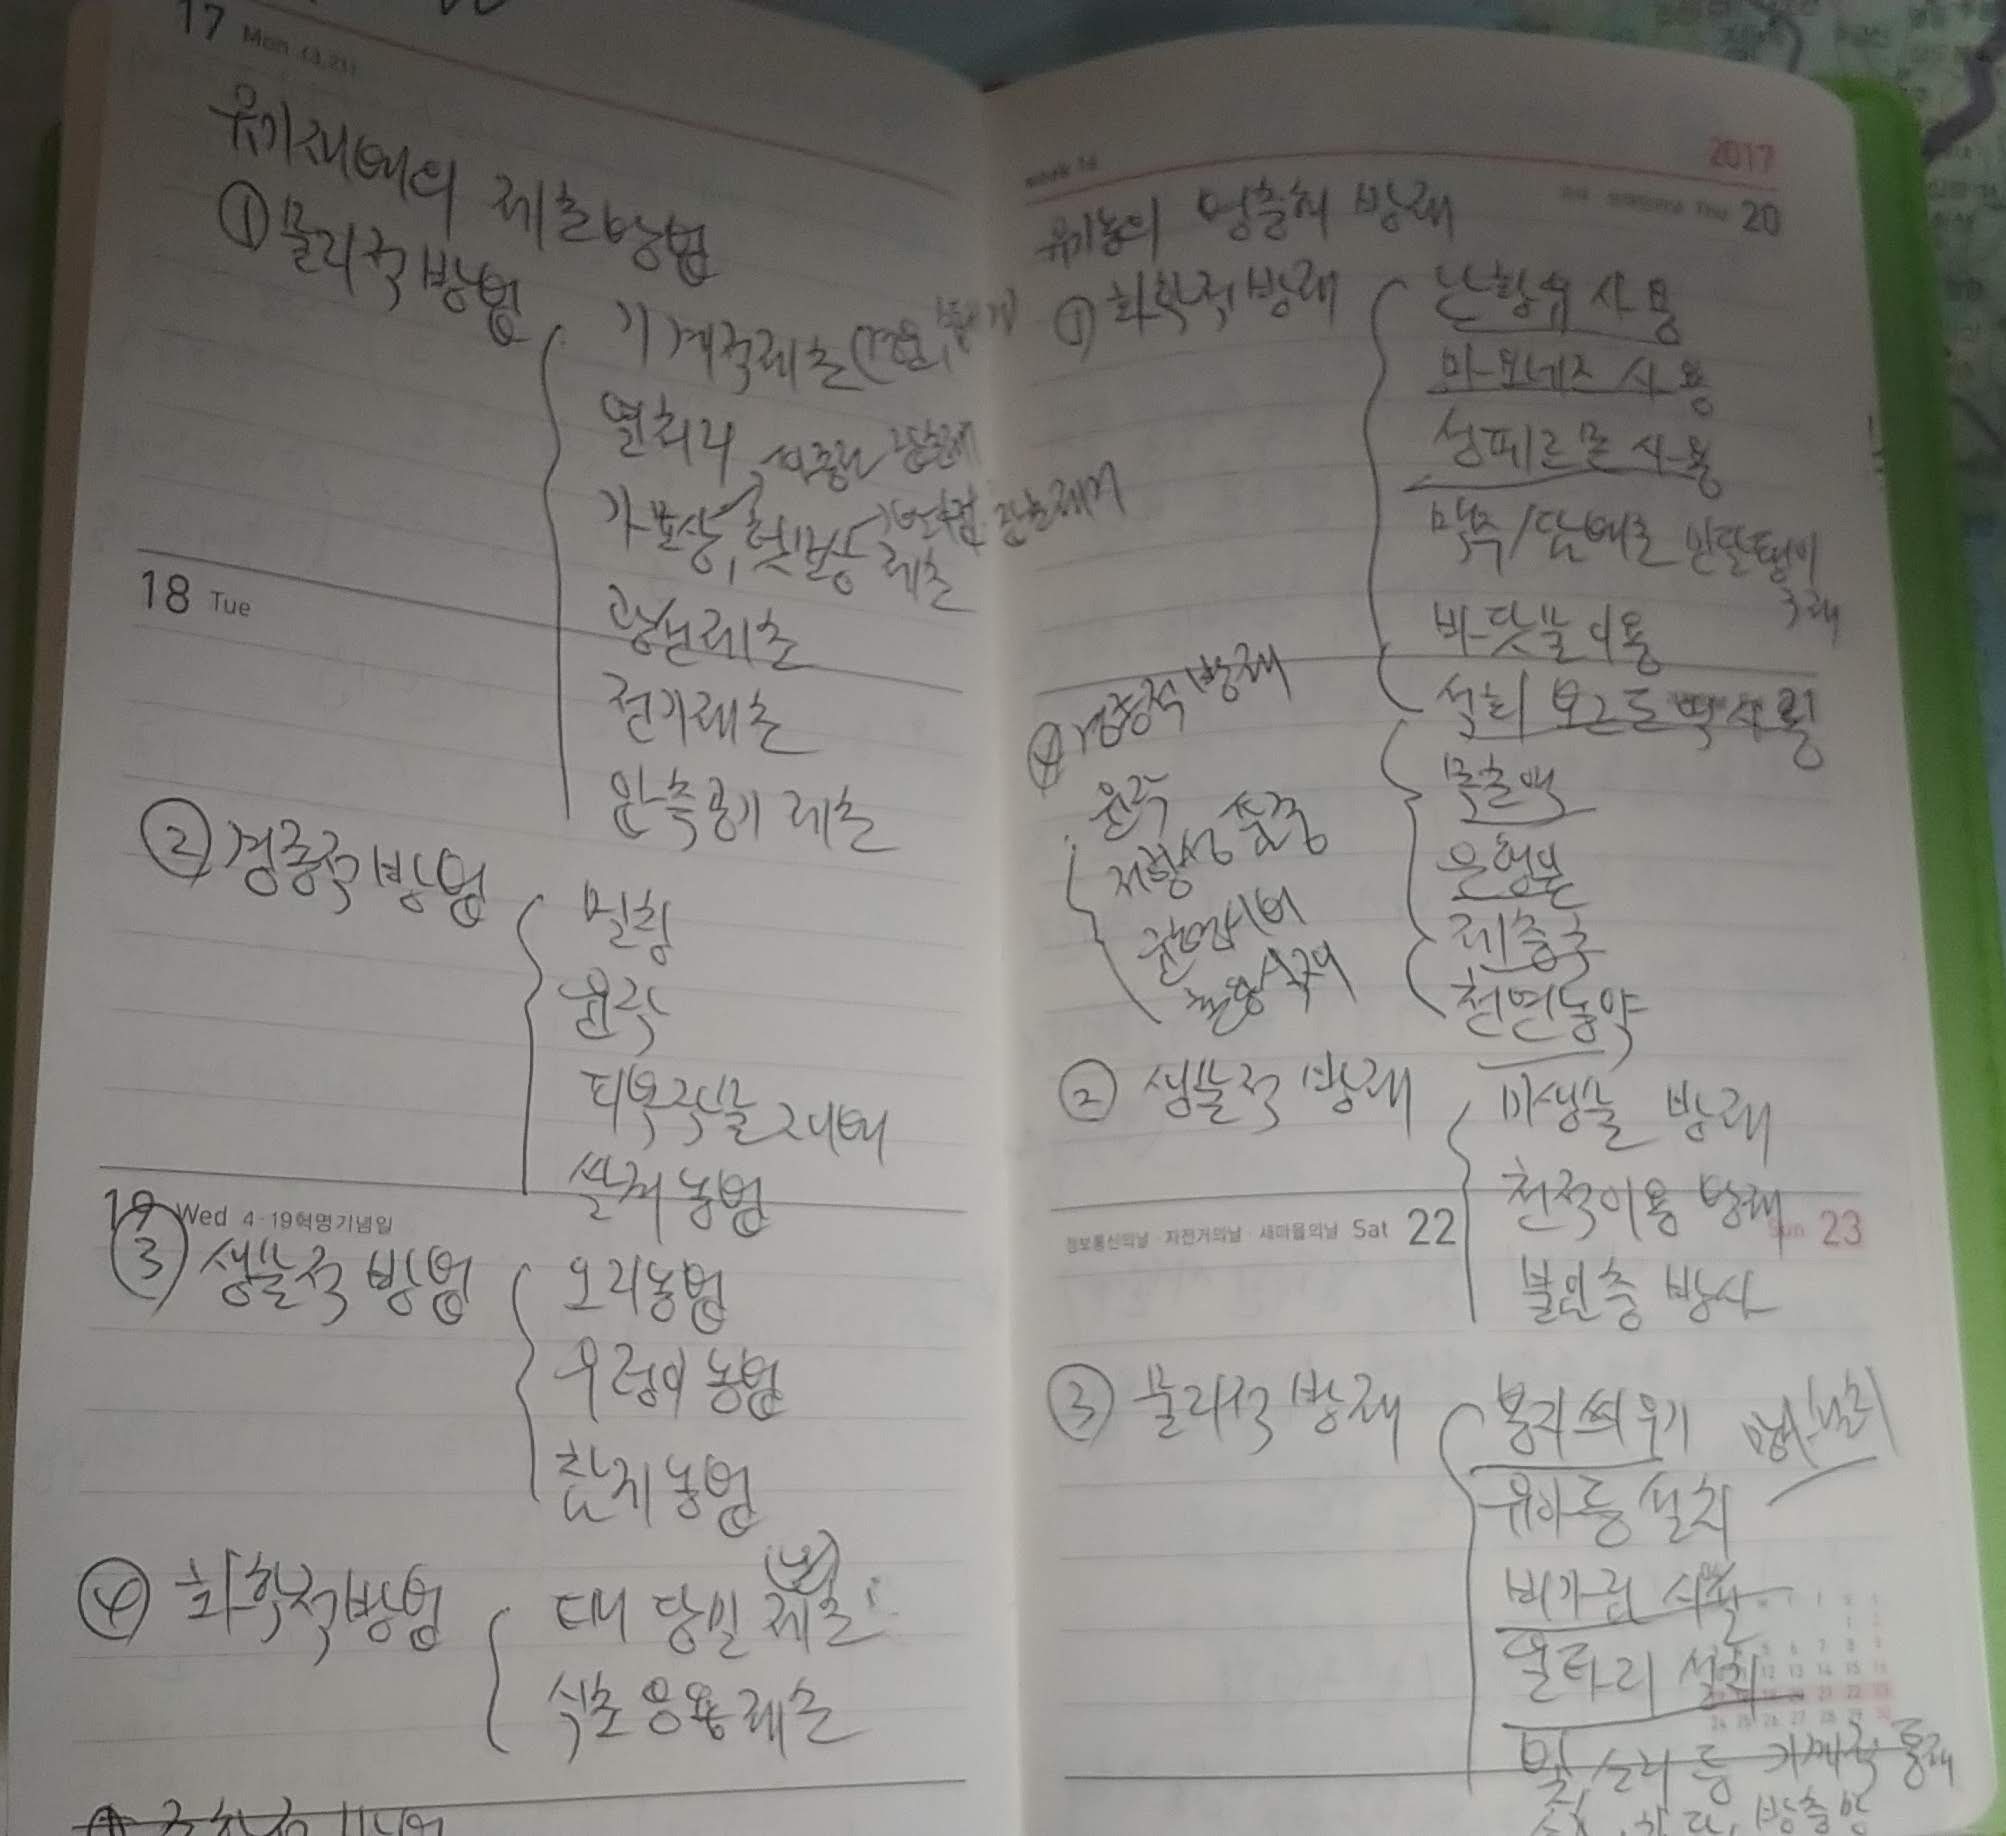 17 Mon (3.21)
유기재배의 제초방법
① 물리적방법
기계적제초(경운,
열처리
가로상, 제초
광선제초
18 Tue
전기제초
압축공기 제초
② 경종적방법
밀창
윤작
피복작물 재배
쌀겨농법
19 Wed 4·19혁명기념일
③ 생물적 방법
오리농법
우렁이농법
참게농법
④ 화학적방법
당밀 제초
식초응용제초
2017
Thu 20
유기농의 병충해 방제
① 화학적방제
난황유 사용
마요네즈 사용
성페르몬 사용
맥주/담배로 민달팽이
구제
바닷물이용
석회 보르도액 사용
목초액
은행분
제충국
천연농약
④ 경종적방제
윤작
저항성 품종
혼식재배
② 생물적 방제
미생물 방제
천적이용 방제
불임충 방사
정보통신의날 · 자전거의날 · 새마을의날 Sat 22
Sun 23
③ 물리적 방제
봉지씌우기
유아등 설치
비가림 시설
울타리 설치
빛, 소리 등 기계적 통제